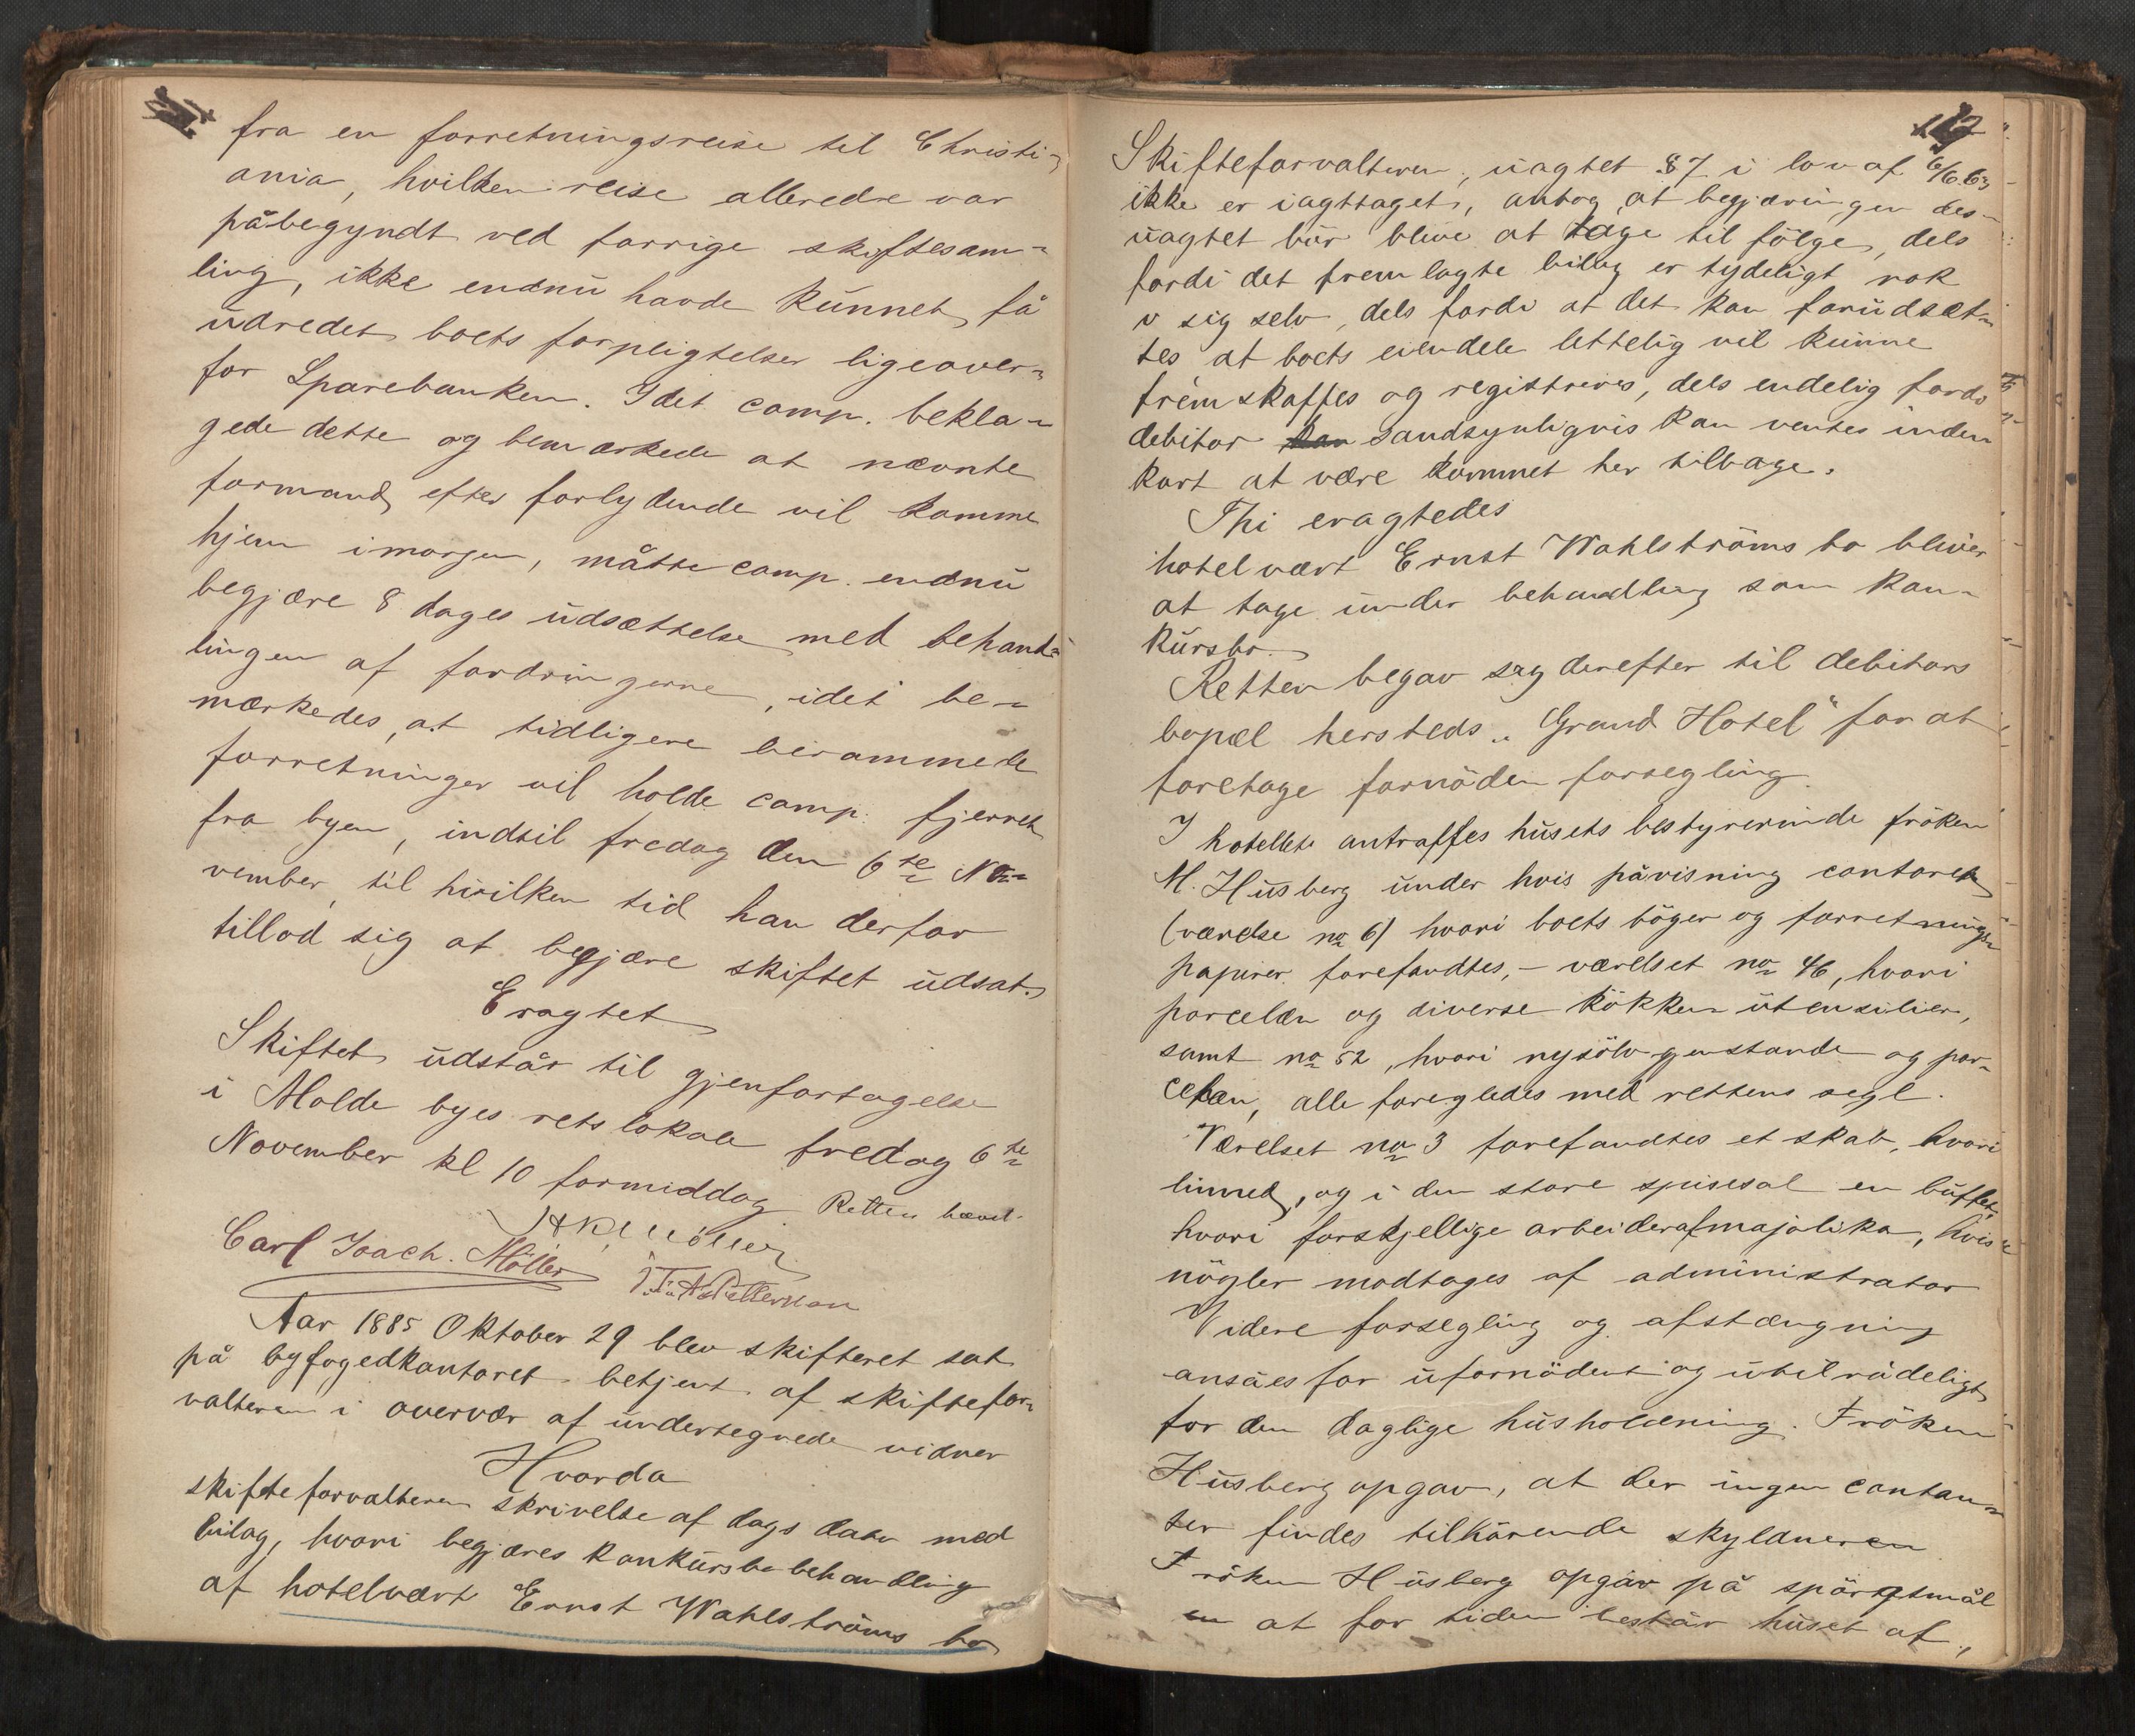 fra en forretningsreise til Christi-
ania, hvilken reise allerede var
påbegyndt ved forrige skiftesam-
ling, ikke endnu havde kunnet få
udredet boets forpligtelser ligeover-
for Sparebanken. Idet comp. bekla-
gede dette og bemærkede at nævnte
formand efter forlydende vil komme
hjem imorgen, måtte comp. endnu
begjære 8 dages udsættelse med behand-
lingen af fordringerne, idet be-
mærkedes, at tidligere berammede
forretninger vil holde comp. fjernet
fra byen, indtil fredag den 6te No-
vember, til hvilken tid han derfor
tillod sig at begjære skiftet udsat.
Eragtet
Skiftet udstår til gjenfortagelse
i Molde byes retslokale fredag 6te
November kl 10 formiddag Retten hævet.
Carl Joach. Möller
Aar 1885 Oktober 29 blev skifteret sat
på byfogedkontoret betjent af skiftefor-
valteren i overvær af undertegnede vidner
Hvorda
skifteforvalteren skrivelse af dags dato med
bilag, hvori begjæres konkursbobehandling
af hotelvært Ernst Wahlströms bo
Skifteforvalteren, uagtet §7 i lov af 6/6 63
ikke er iagttaget, antog at begjæringen des-
uagtet bör blive at tage til fölge, dels
fordi det fremlagte bilag er tydeligt nok
i sig selv, dels fordi at det kan forudsæt-
tes at boets eiendele lettelig vil kunne
fremskaffes og registreres, dels endelig fordi
debitor kan sandsynligvis kan ventes inden
kort at være kommet her tilbage.
Thi eragtedes
hotelvært Ernst Wahlströms bo bliver
at tage under behandling som kon-
kursbo.
Retten begav sig derefter til debitors
bopæl hersteds "Grand Hotel" for at
foretage fornöden forsegling.
I hotellet antraffes husets bestyrerinde fröken
M. Husberg under hvis påvisning contoret
(værelse no 6) hvori boets böger og forretnings-
papirer forefandtes, – værelset no 46, hvori
porcelæn og diverse kökken utensilier,
samt no 52, hvori nysölv gjenstande og por-
celæn, alle foregledes med rettens segl.
Værelset no 3 forefandtes et skab, hvori
linned, og i den store spisesal en buffet,
hvori forskjellige arbeider af majolika, hvis
nögler modtages af administrator
Videre forsegling og afstængning
ansåes for ufornödent og utilrådeligt
for den daglige husholdning. Fröken
Husberg opgav, at der ingen contan-
ter findes tilhörende skyldneren
Fröken Husberg opgav på spörgtsmål
en at for tiden består huset af,